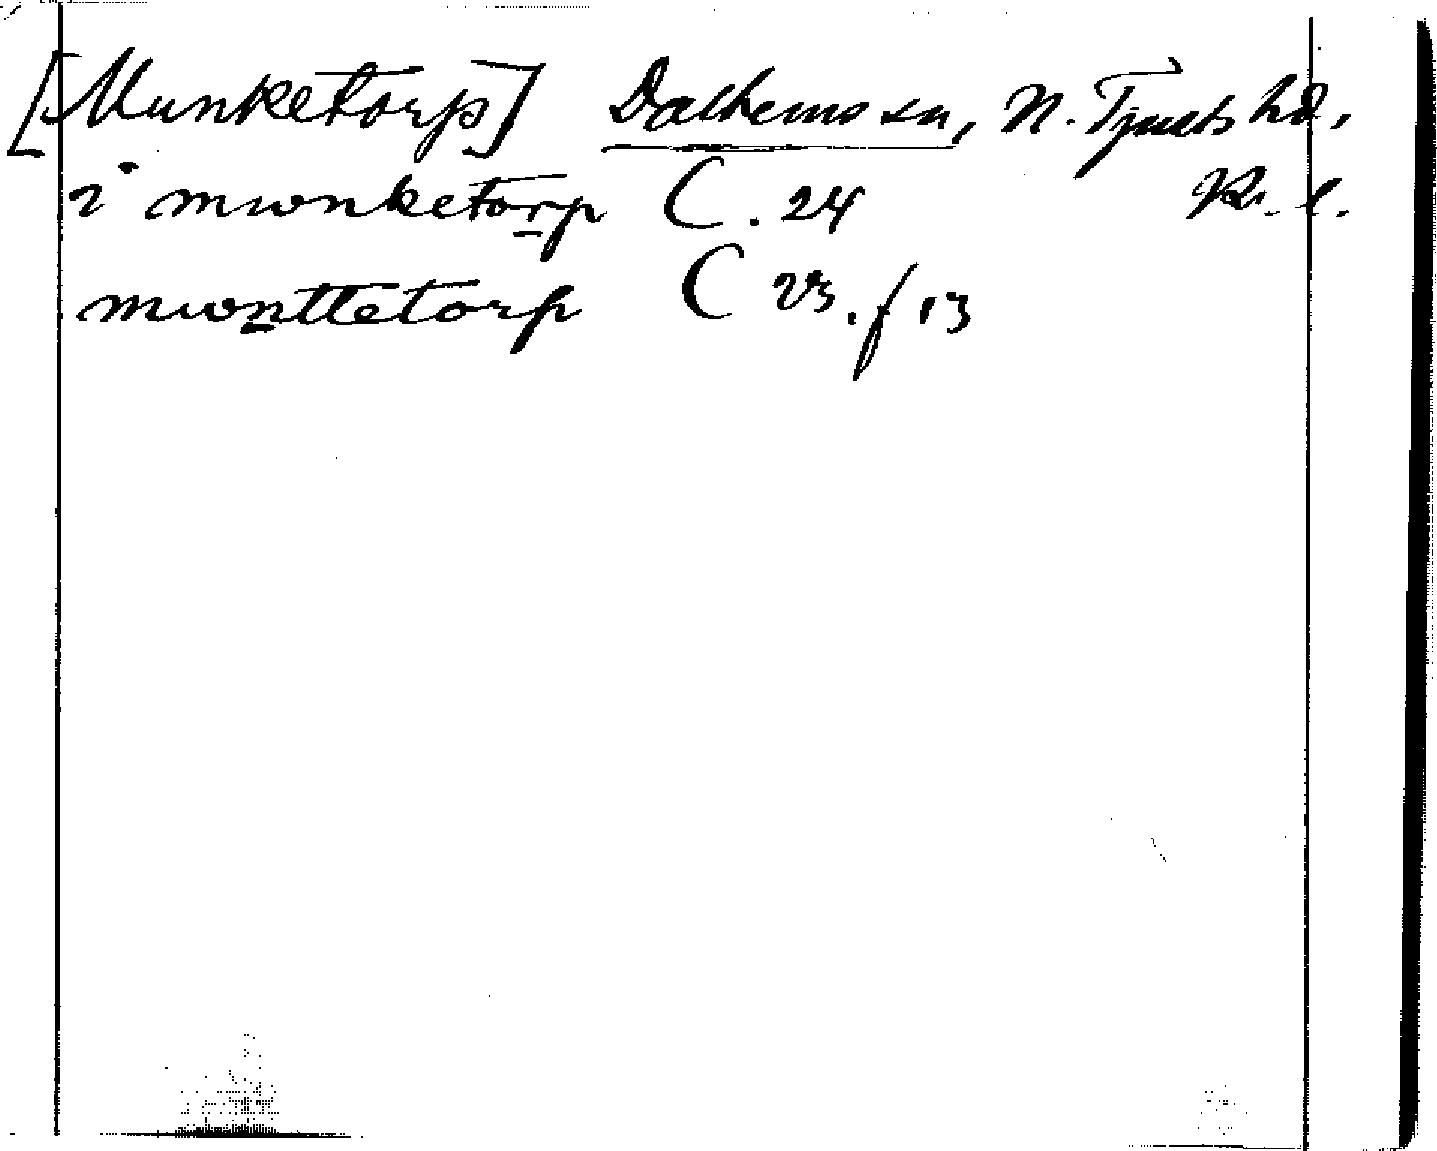 [Munketorp] Dalhems sn, N. Tjusts hd,
i munketorp C. 24 K. l.
munttetorp C 23. f 13